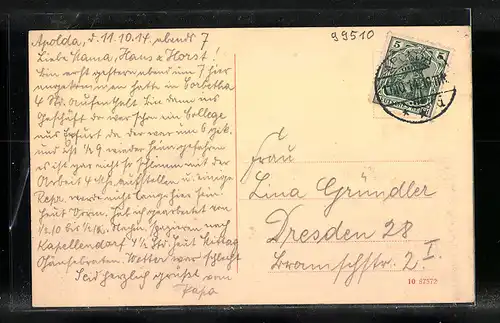 99510
Apolda, d. 11.10.14. abends 7
Liebe Mama, Hans & Horst!
Bin erst gestern abend um 7 hier
angekommen hatte in Corbetha
4 Std. Aufenthalt Bin dann ins
Geschäft da war schon ein College
aus Erfurt da der war um 6 gek.
und ist ½ 9 wieder heimgefahren
es ist gar nicht so schlimm mit der
Arbeit 4 aufstellen u. einige
Repa. werde nicht lange hier sein
heut Vorm. hab ich gearbeitet von
½10 bis ½1. Nachm. spazieren nach
Kapellendorf 1½ Std. Zeit Mittag
Gänsebraten. Wetter war schlecht
Seid herzlich grüßt von
Papa
5 5
Frau
Lina Gründler
Dresden 28
Bramschstr. 2. I.
10 87372